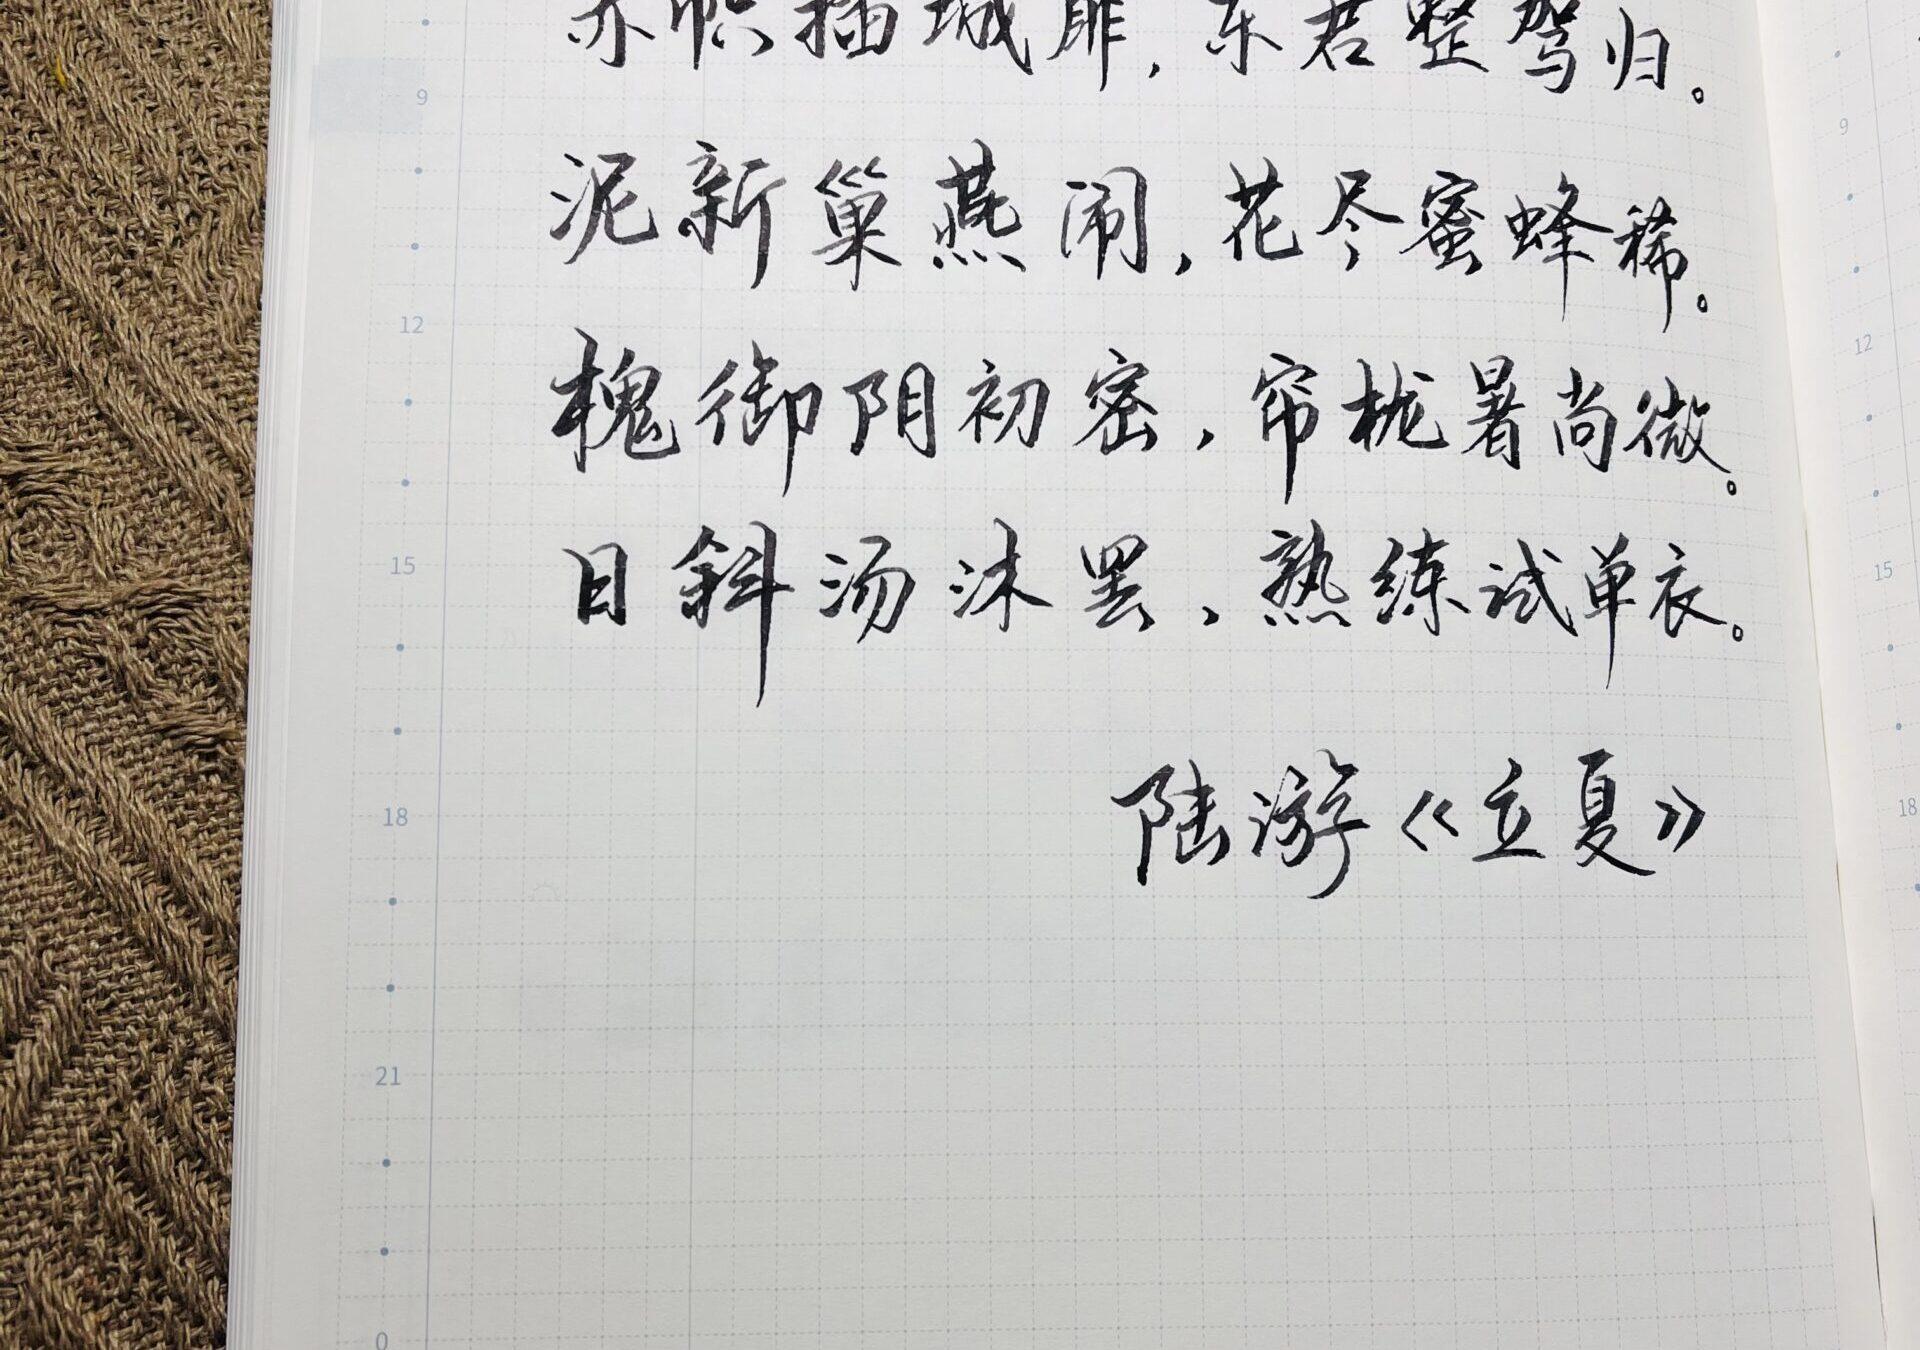 赤帜插城扉,东君整驾归。
9
泥新巢燕闹,花尽蜜蜂稀。
12
槐御阴初密,帘栊暑尚微。
15
日斜汤沐罢,熟练试单衣。
18
陆游《立夏》
21
0
9
12
15
18